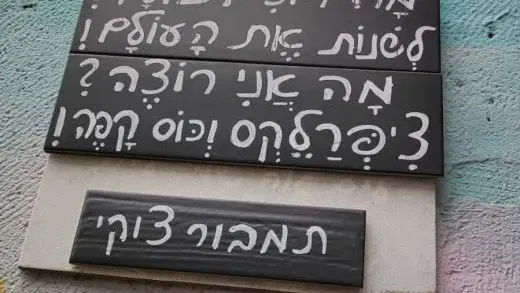 לְשַׁנּוֹת אֶת הָעוֹלָם!
מָה אֲנִי רוֹצֶה?
צִיפְּרַלֶקְס וְכוֹס קָפֶה!
תמבור צוקי